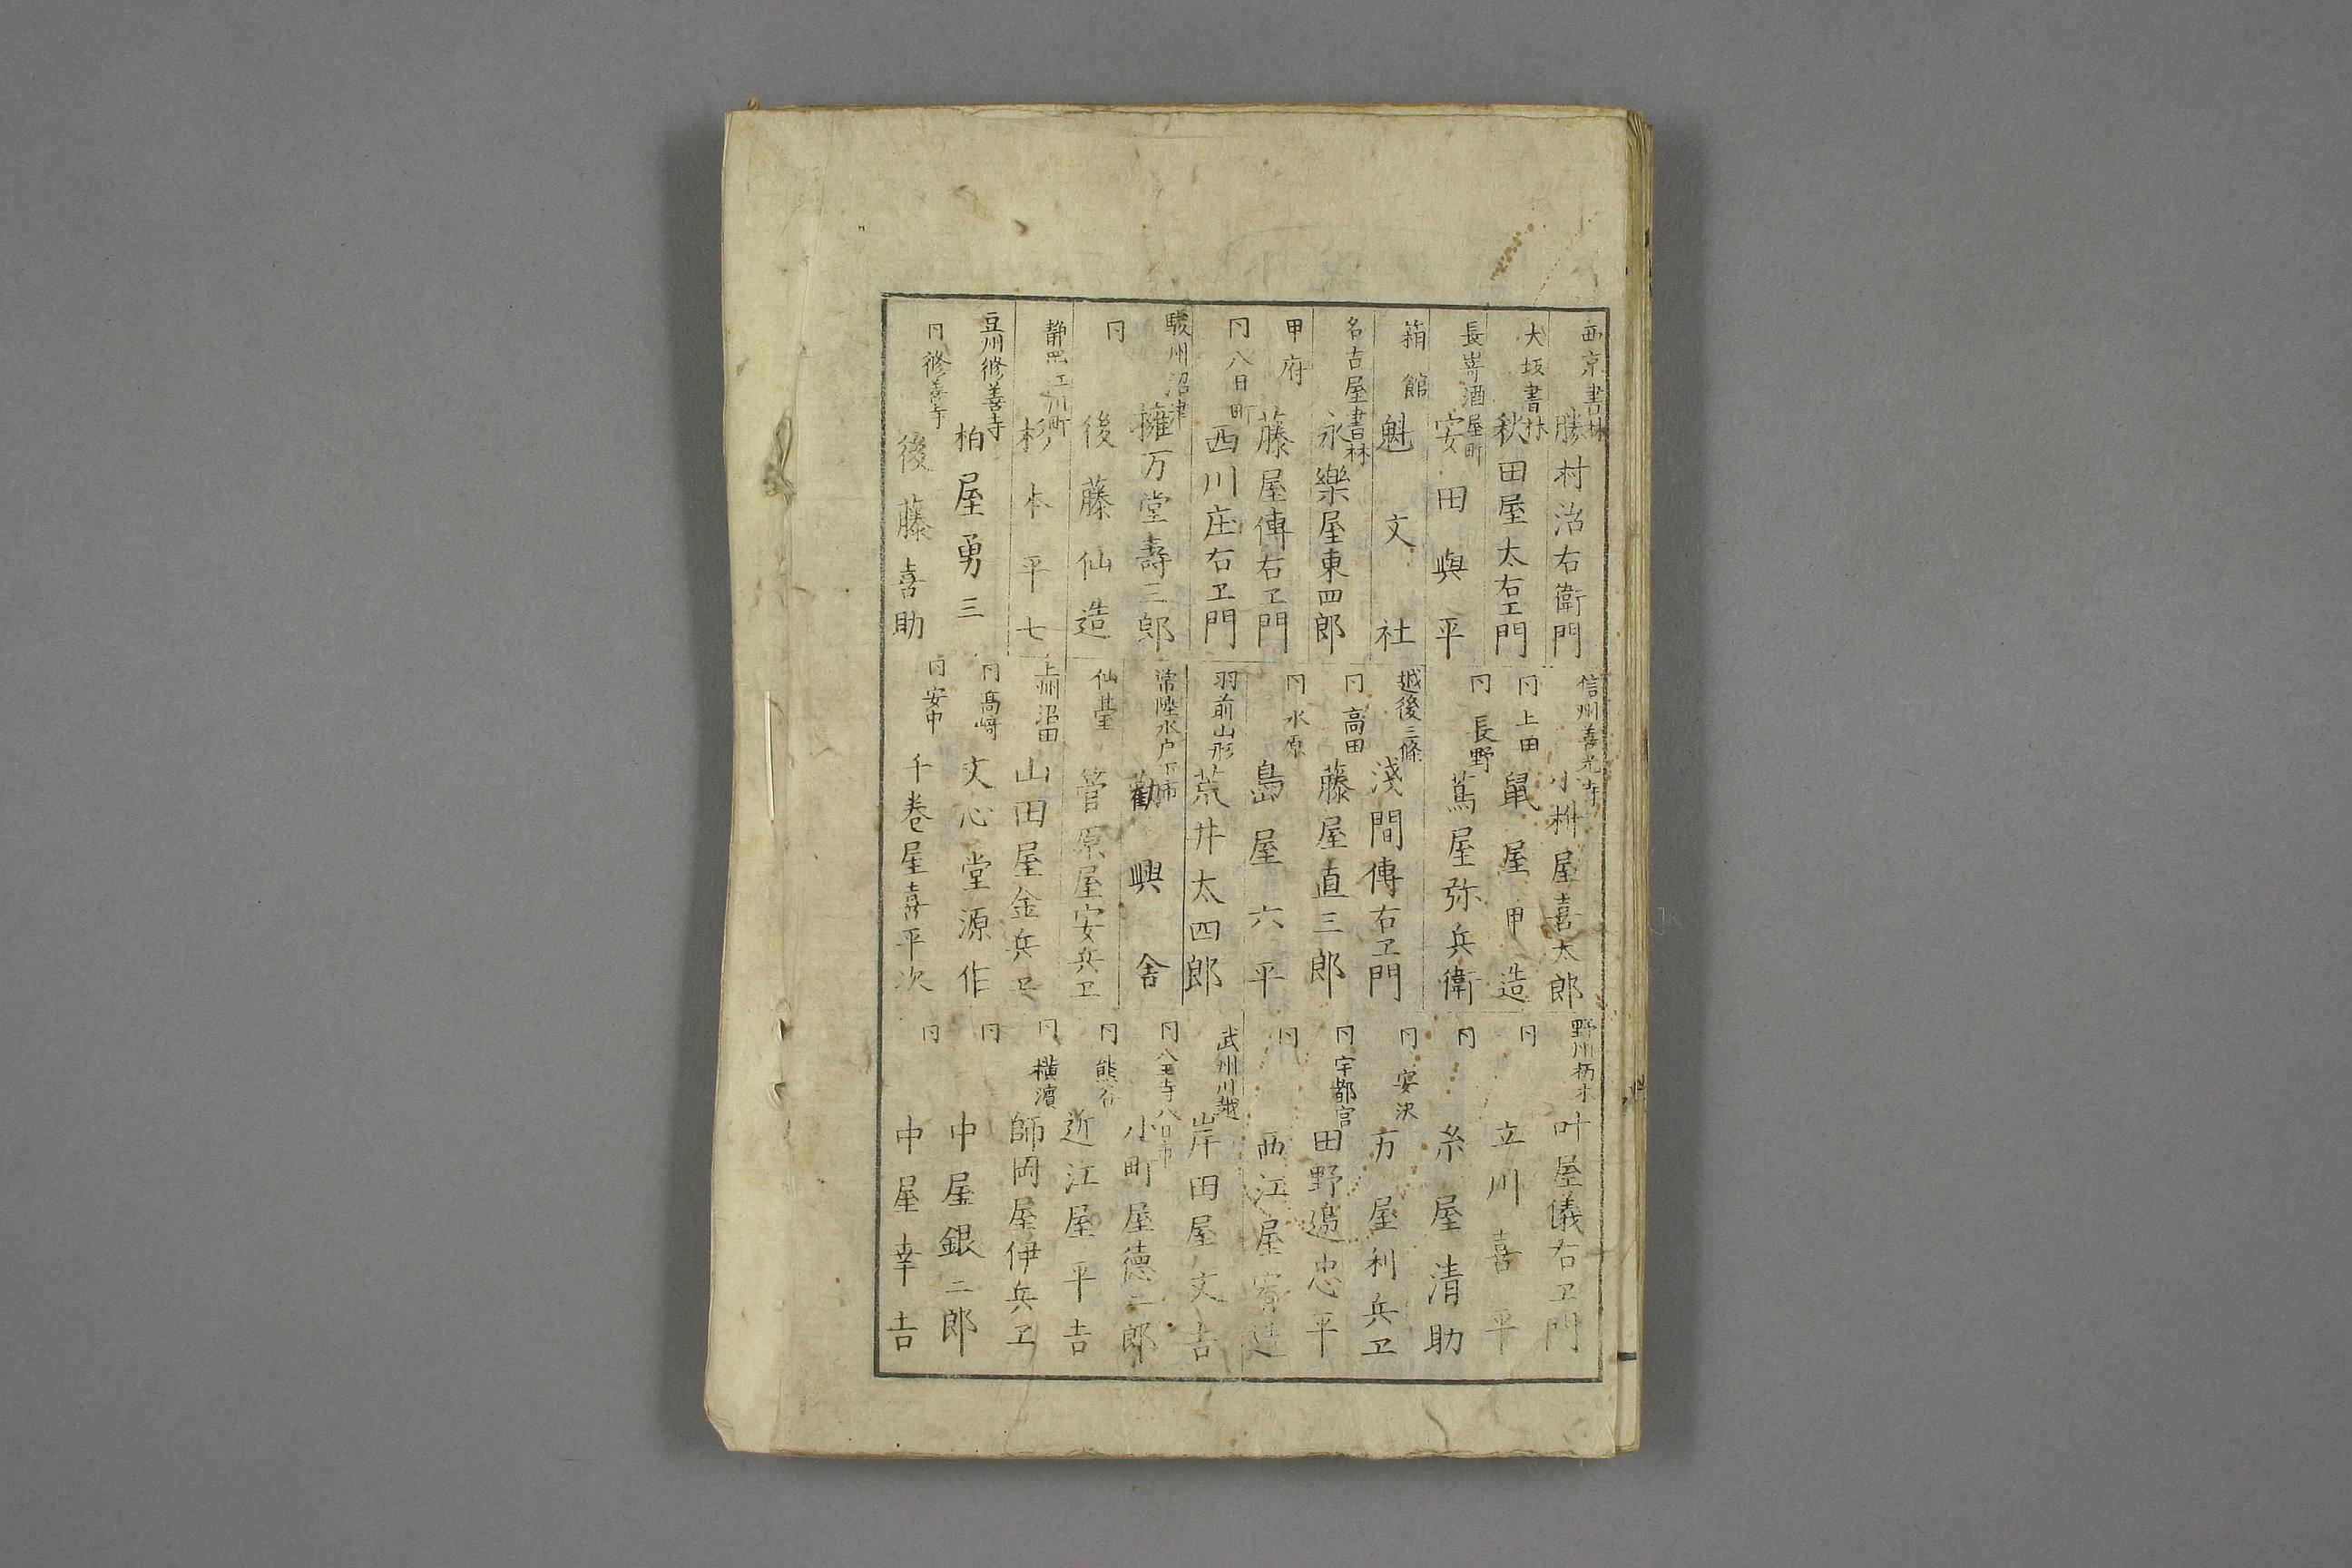 西京書林 勝村治右衛門
大坂書林 秋田屋太右エ門
長嵜酒屋町 安田與平
箱館 魁文社
名古屋書林 永樂屋東四郎
甲府 藤屋傳右ヱ門
仝八日町 西川庄右ヱ門
駿州沼津 擁万堂壽三郎
仝 後藤仙造
静岡江川町 杉本平七
豆州修善寺 柏屋勇三
仝修善寺 後藤喜助
信州善光寺 小桝屋喜太郎
仝上田 鼠屋甲造
仝長野 蔦屋弥兵衛
越後三條 淺間傳右ヱ門
仝高田 藤屋直三郎
仝水原 島屋六平
羽前山形 荒井太四郎
常陸水户下市 勸興舎
仙基 菅原屋安兵ヱ
上州沼田 山田屋金兵ヱ
仝高﨑 文心堂源作
仝安中 千巻屋喜平次
野州栃木 叶屋儀右ヱ門
仝 立川喜平
仝 糸屋清助
仝 方屋利兵ヱ
仝宇都宮 田野邉忠平
仝 西江屋
武州川越 岸田屋文吉
仝八王寺八日市 小町屋德二郎
仝熊谷 近江屋平吉
仝横濱 師岡屋伊兵ヱ
仝 中屋銀二郎
仝 中屋幸吉